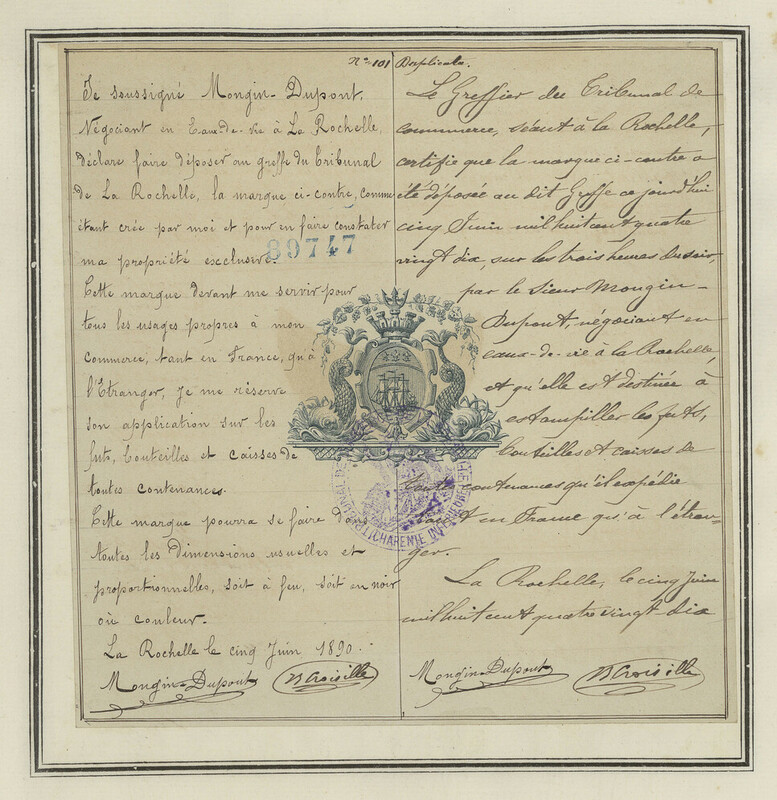 Nº 101 Duplicata.
Je soussigné Mongin-Dupont,
Négociant en Eaux-de-vie à La Rochelle,
déclare faire déposer au greffe du Tribunal
de La Rochelle, la marque ci-contre, comme
étant crée par moi et pour en faire constater
ma propriété exclusive.
89747
Cette marque devant me servir pour
tous les usages propres à mon
commerce, tant en France, qu'à
l'Etranger, je me réserve
son application sur les
futs, bouteilles et caisses de
toutes contenances.
Cette marque pourra se faire dans
toutes les dimensions usuelles et
proportionnelles, soit à feu, soit en noir
où couleur.
La Rochelle le cinq Juin 1890.
Mongin-Dupont
Croisille
Le Greffier du Tribunal de
commerce, séant à la Rochelle,
certifie que la marque ci-contre a
été déposée au dit Greffe ce jourd'hui
cinq Juin mil huit cent quatre
vingt dix, sur les trois heures du soir,
par le Sieur Mongin-
Dupont, négociant en
eaux-de-vie à la Rochelle,
et qu'elle est destinée à
estampiller les futs,
bouteilles et caisses de
toutes contenances qu'il expédie
tant en France qu'à l'étran-
ger.
La Rochelle, le cinq Juin
mil huit cent quatre vingt dix
Mongin-Dupont
Croisille
TRIBUNAL DE
(CHARENTE INFRE)